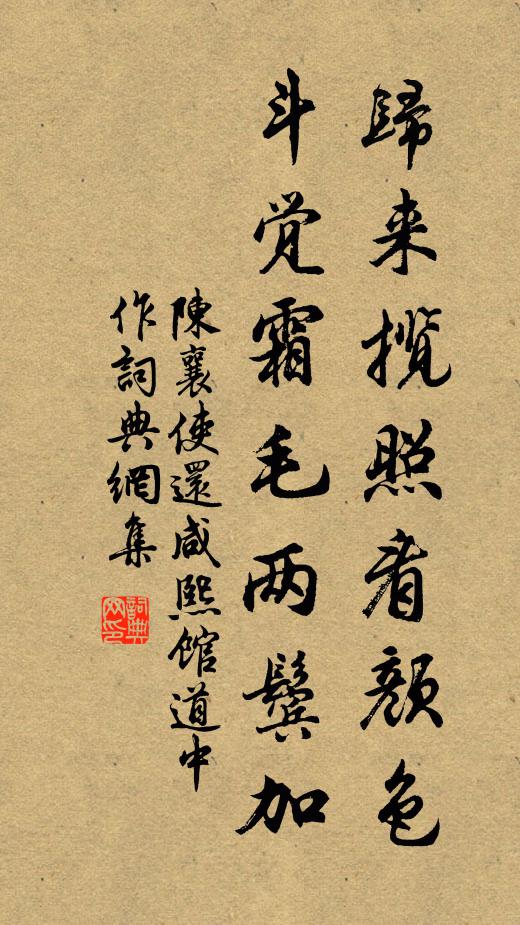 歸来揽照看颜色
斗觉霜毛两鬓加
陳襄使還咸熙館道中
作詞典網集
詞典网印